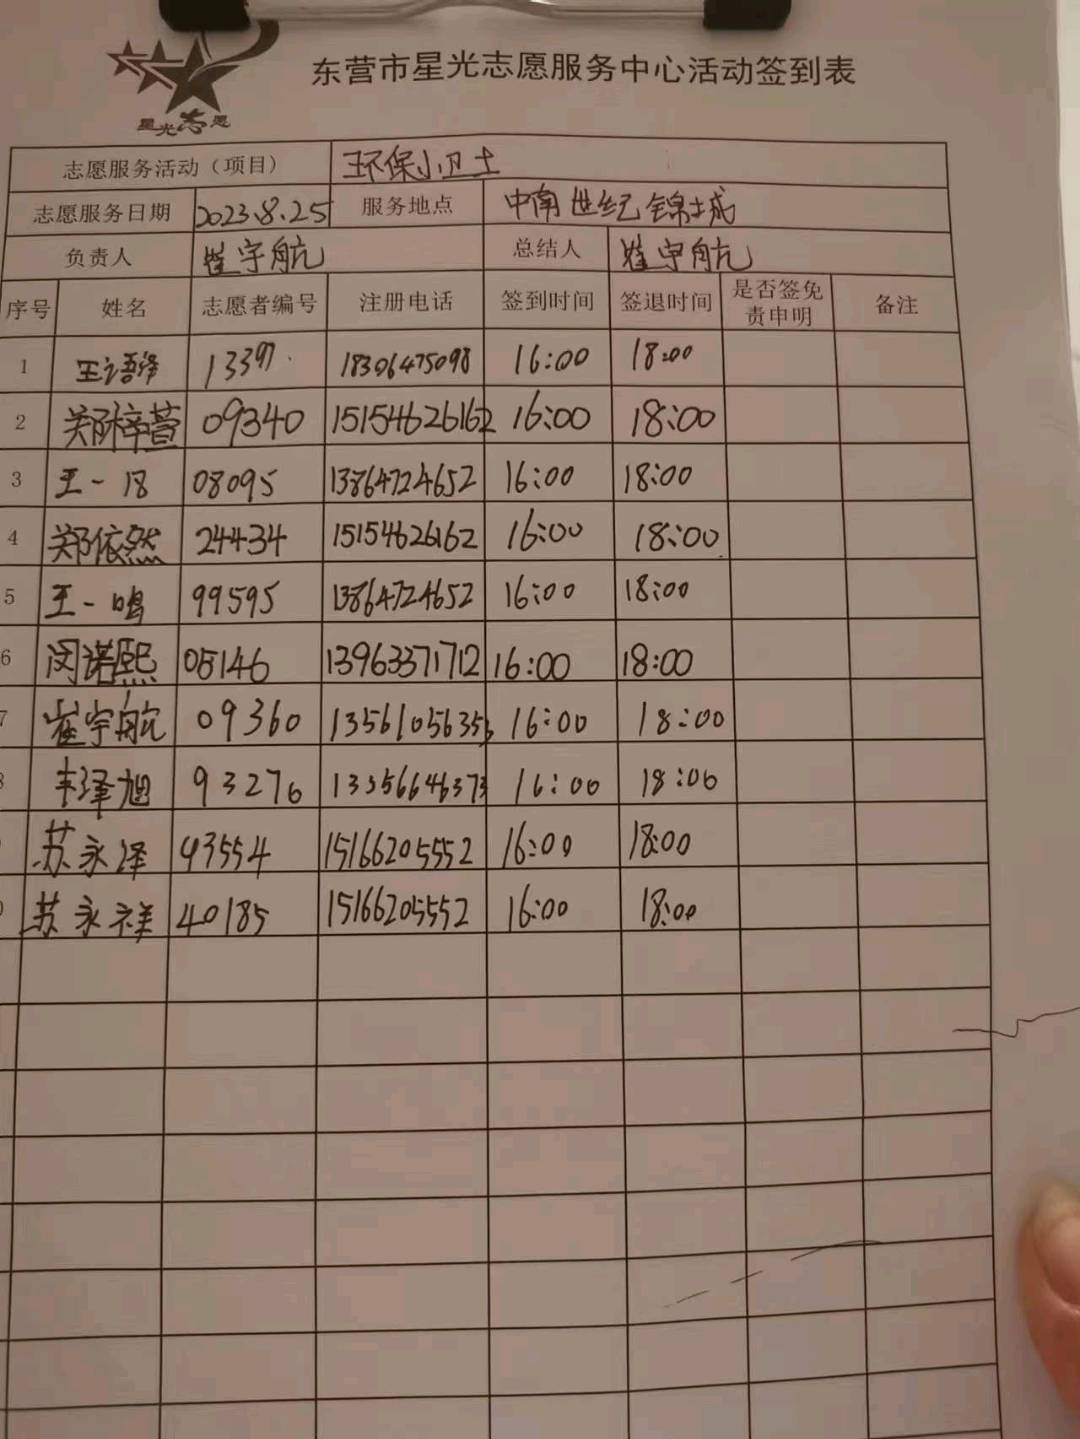 星光志愿
东营市星光志愿服务中心活动签到表
志愿服务活动（项目） 环保小卫士
志愿服务日期 2023.8.25 服务地点 中南世纪锦城
负责人 崔宇航 总结人 崔宇航
序号 姓名 志愿者编号 注册电话 签到时间 签退时间 是否签免责申明 备注
1 王语泽 13397 18306475098 16:00 18:00
2 郑梓萱 09340 15154626162 16:00 18:00
3 王一 08095 13864724652 16:00 18:00
4 郑依然 24434 15154626162 16:00 18:00
5 王一鸣 99595 13864724652 16:00 18:00
6 闵诺熙 08146 13963371712 16:00 18:00
7 崔宇航 09360 13561056353 16:00 18:00
8 丰泽旭 93276 13356646373 16:00 18:00
苏永泽 43554 15166205552 16:00 18:00
苏永祥 40185 15166205552 16:00 18:00